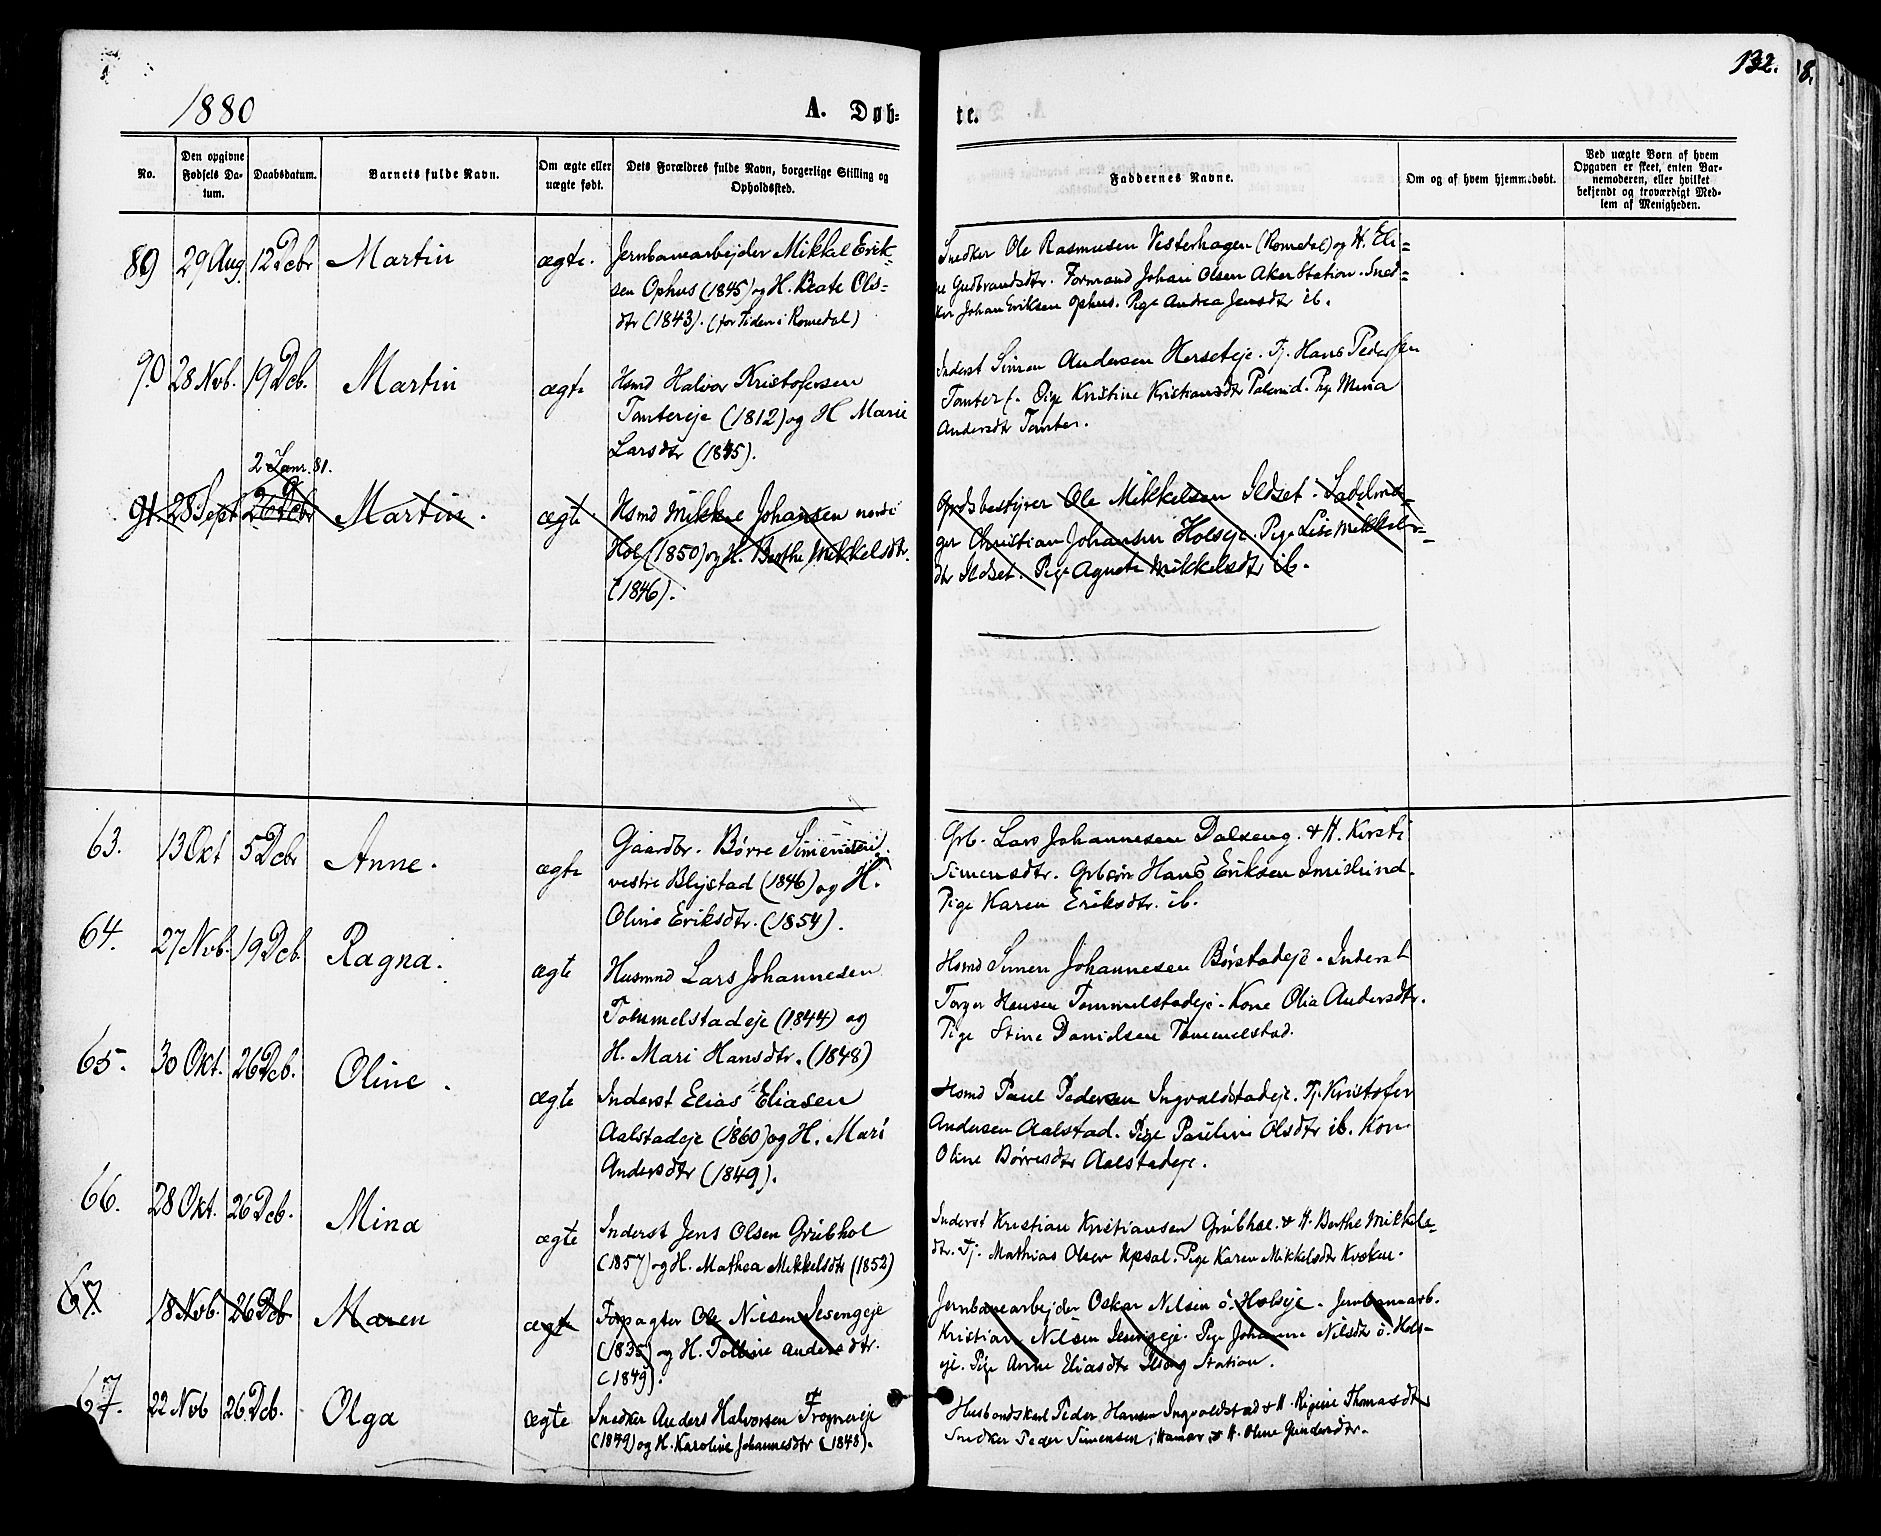 132.
8.
1880
A. Døb=
te.
No.
Den opgivne Fødsels Da-tum.
Daabsdatum.
Barnets fulde Navn.
Om ægte eller uægte født.
Dets Forældres fulde Navn, borgerlige Stilling og Opholdssted.
Faddernes Navne.
Om og af hvem hjemmedøbt.
Ved uægte Born af hvem Opgaven er skeet, enten Bar-nemoderen, eller hvilket bekjendt og troværdigt Med-lem af Menigheden.
89 29 Aug. 12 Dcbr Martin ægte.
Jernbanearbejder Mikkel Erik-
sen Ophus (1845) og H. Beate Ols-
dtr (1843). (for Tiden i Romedal)
Snedker Ole Rasmussen Vesterhagen (Romedal) og H. Eli=
ne Gudbrandsdtr. Formand Johan Olsen Aker Station. Sned=
ker Johan Eriksen Ophus. Pige Andrea Jensdtr ib.
90 28 Nvb. 19 Dcb. Martin ægte
Hsmd Halvor Kristofersen
Tomtereje (1812) og H Marie
Larsdtr (1845).
Inderst Simen Andersen Herseteje. Tj. Hans Pedersen
Tomter. Pige Kristine Kristiansdtr. Pige Mina
Andersdtr Tomter.
2 Janr. 81.
91. 28 Sept 26 Dcbr Martin. ægte
Hsmd Mikkel Johansen nordr
Hol (1850) og H. Berthe Mikkelsdtr.
(1846).
Grdsbestyrer Ole Mikkelsen Ildset. Sadelma-
ger Christian Johansen Holseje. Pige Lise Mikkels-
dtr Ildset. Pige Agnete Mikkelsdtr ib.
63. 13 Okt 5 Dcbr Anne. ægte
Gaardbr. Børre Simensen
vestre Blystad (1846) og H.
Oline Eriksdtr. (1854).
Grb. Lars Johannesen Dalseng. & H. Kirsti
Simensdtr. Grbsøn Hans Eriksen Imislund.
Pige Karen Eriksdtr. ib.
64. 27 Nvb. 19 Dcb. Ragna. ægte
Husmnd Lars Johannesen
Tommelstadeje (1844) og
H. Mari Hansdtr. (1848)
Hsmd Simen Johannesen Børstadeje. Inderst
Torger Hansen Tommelstadeje. Kone Olia Andersdtr.
Pige Stine Danielsen Tommelstad.
65. 30 Okt. 26 Dcb. Oline. ægte
Inderst Elias Eliasen
Aalstadeje (1860) og H. Mari
Andersdtr (1849).
Hsmd Paul Pedersen Ingvaldstadeje. Tj. Kristofer
Andersen Aalstad. Pige Pauline Olsdtr ib. Kone
Oline Børresdtr Aalstadeje.
66. 28 Okt. 26 Dcb. Mina ægte
Inderst Jens Olsen Grubhol
(1857) og H. Mathea Mikkelsdtr (1852)
Inderst Kristian Kristiansen Grubhol. & H. Berthe Mikkels-
dtr. Tj. Mathias Olsen Upsal. Pige Karen Mikkelsdtr Kveken.
67. 18 Nvb. 26 Dcb. Maren ægte
Forpagter Ole Nilsen Ilsengeje
(1835) og H. Tolline Andersdtr.
(1849).
Jernbanearbejder Oskar Nilsen ö. Holseje. Jernbanearb.
Kristian Nilsen Ilsengeje. Pige Johanne Nilsdtr ö. Hols-
eje. Pige Anne Eliasdtr Ilseng Station.
67. 22 Nvb 26 Dcb. Olga ægte
Snedker Anders Halvorsen Frogneeje
(1849) og H. Karoline Johannesdtr (1848).
Husbondskarl Peder Hansen Ingvaldstad & H. Regine Thomasdtr
Snedker Peder Simensen i Hamar, & H. Oline Gundersdtr.